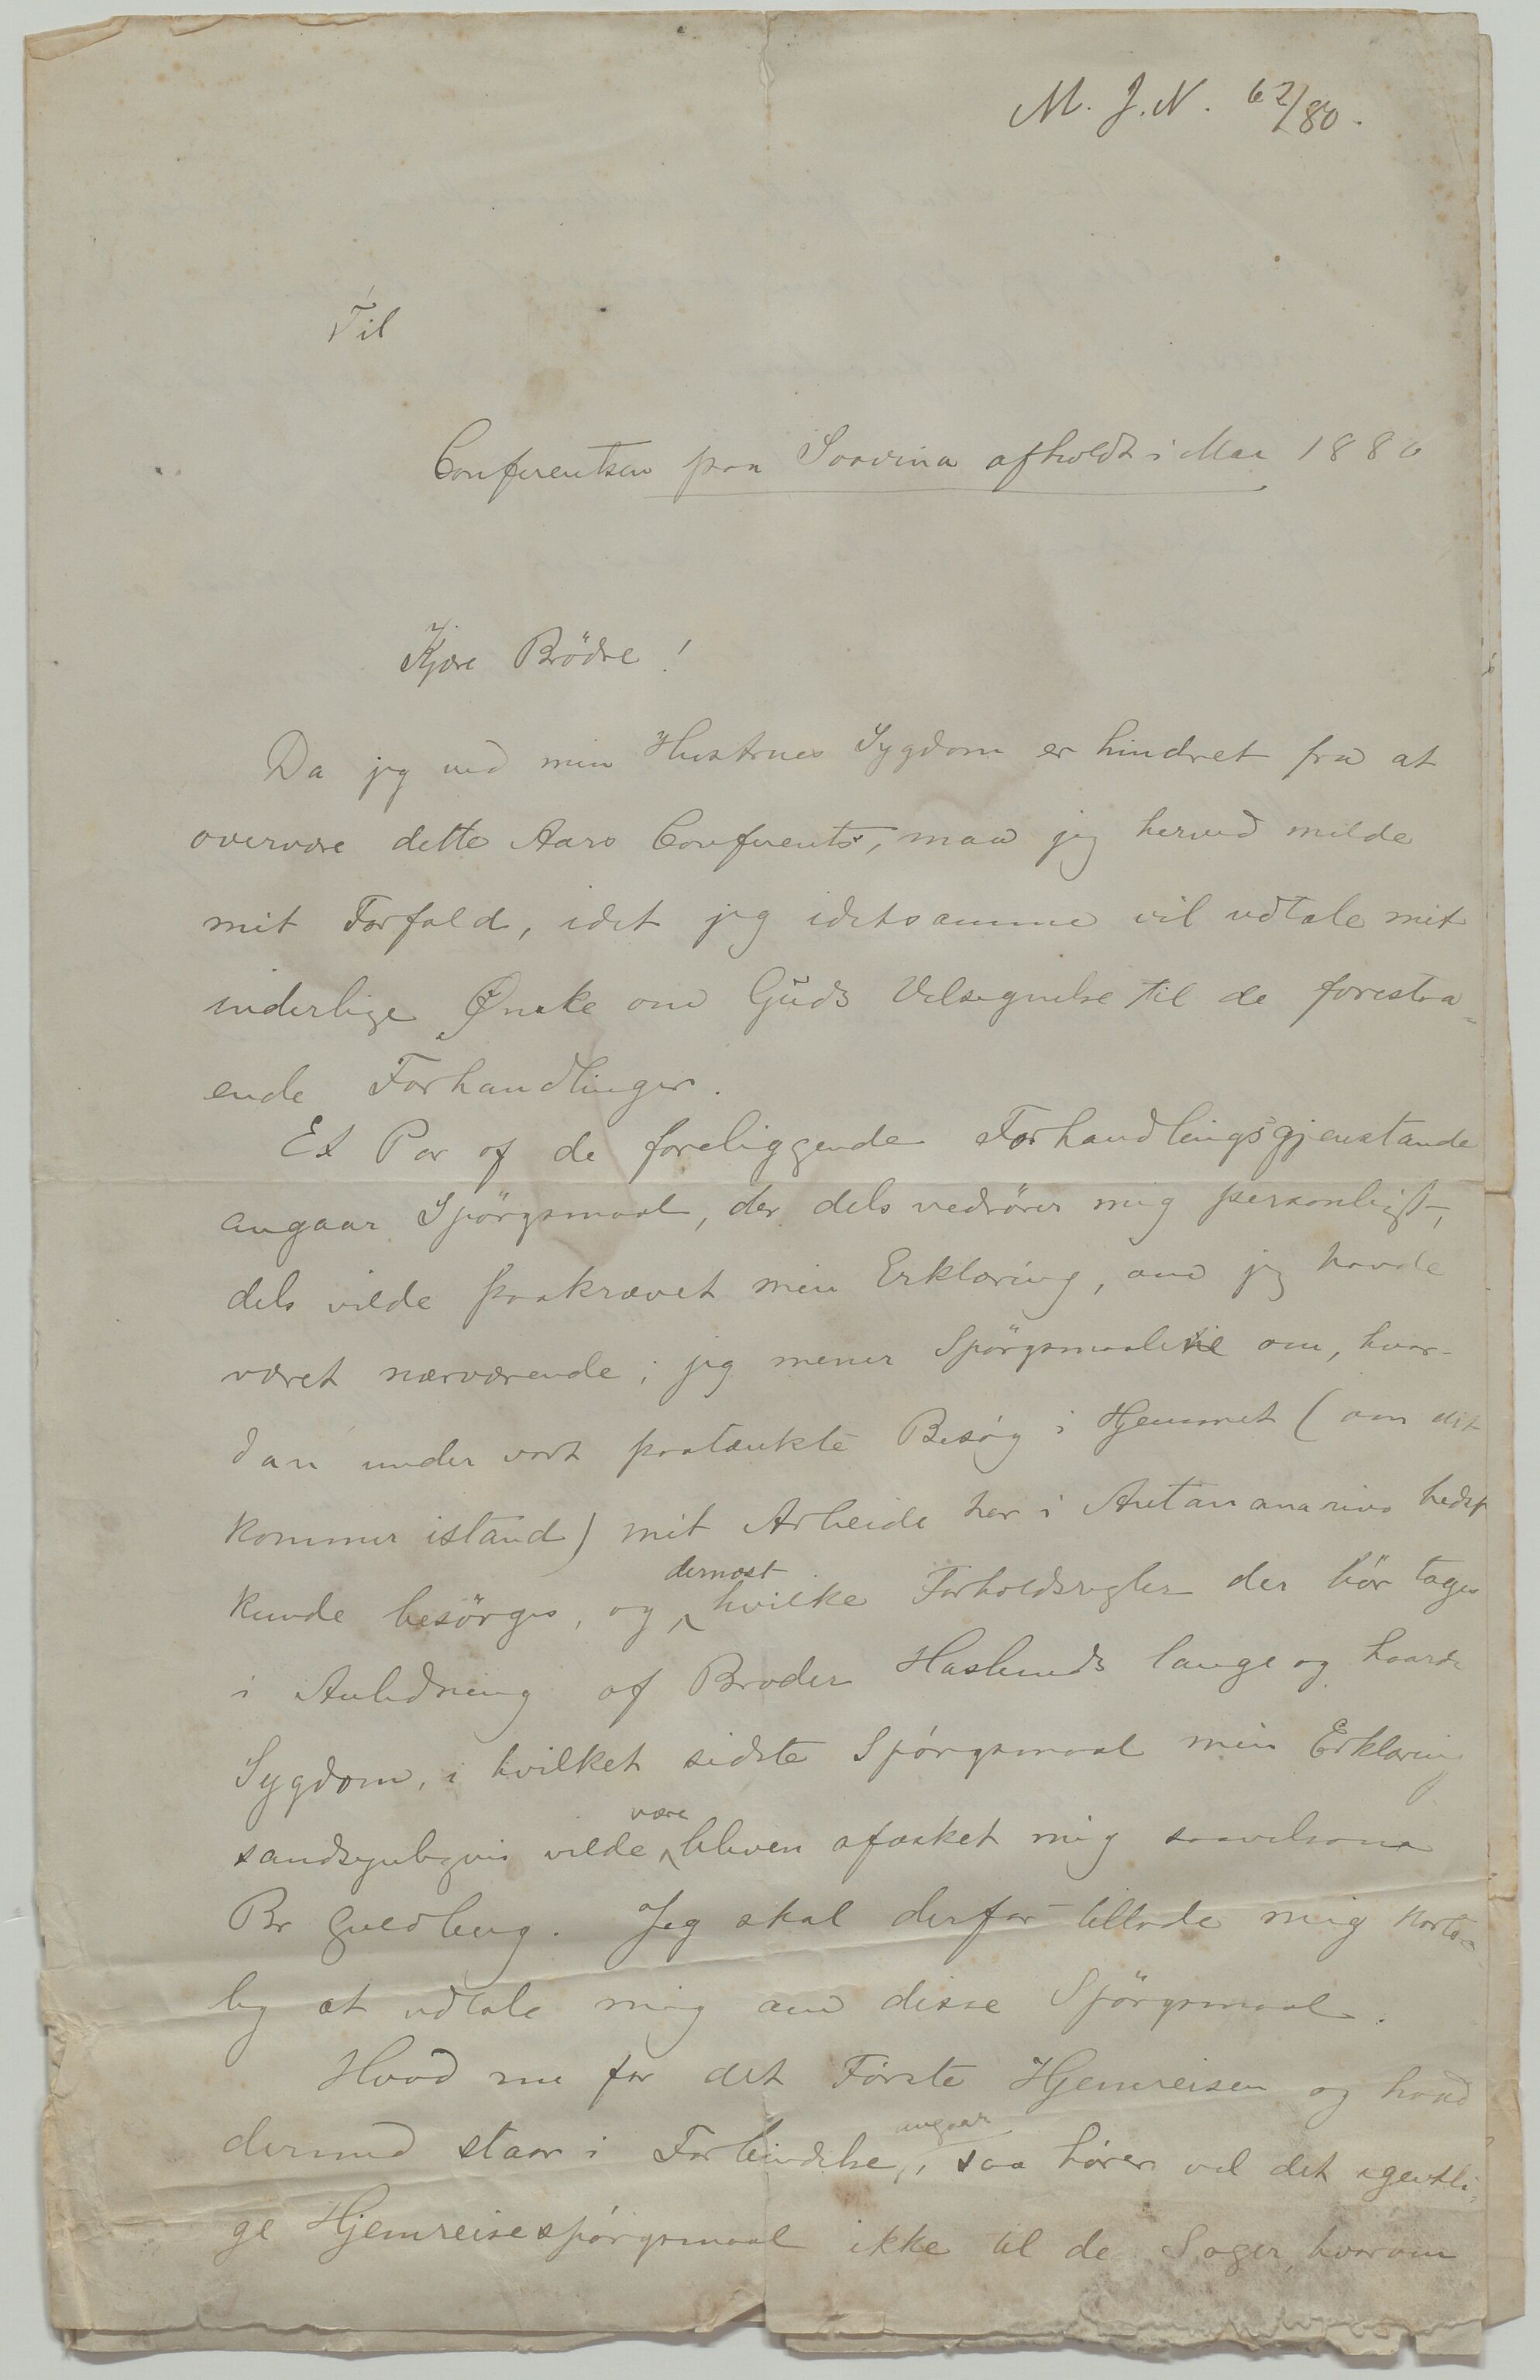 M. J. N. 62/80.
Til
Conferentsen paa Soavina afholdt i Mai 1880
Kjære Brödre!
Da jeg ved min Hustrues Sygdom er hindret fra at
overvære dette Aars Conferents, maa jeg herved melde
mit Forfald, idet jeg idetsamme vil udtale mit
inderlige Ønske om Guds Velsignelse til de forestaa-
ende Forhandlinger.
Et Par af de foreliggende Forhandlingsgjenstande
angaar Spörgsmaal, der dels vedrörer mig personligt,
dels vilde paakrævet min Erklæring, om jeg havde
været nærværende; jeg mener Spörgsmaalene om, hvor-
dan under vort paatænkte Besög i Hjemmet (om det
kommer istand) mit Arbeide her i Antananarivo bedst
kunde besörges, og dernæst hvilke Forholdsregler der bör tages
i Anledning af Broder Haslunds lange og haarde
Sygdom, i hvilket sidste Spörgsmaal min Erklæring
sandsynligvis vilde være bleven afæsket mig saavelsom
Br Guldberg. Jeg skal derfor tillade mig korte-
lig at udtale mig om disse Spörgsmaal.
Hvad nu for det Förste Hjemreisen og hvad
dermed staar i Forbindelse, angaar, saa hörer vel det egentli-
ge Hjemreisespörgsmaal ikke til de Sager, hvorom